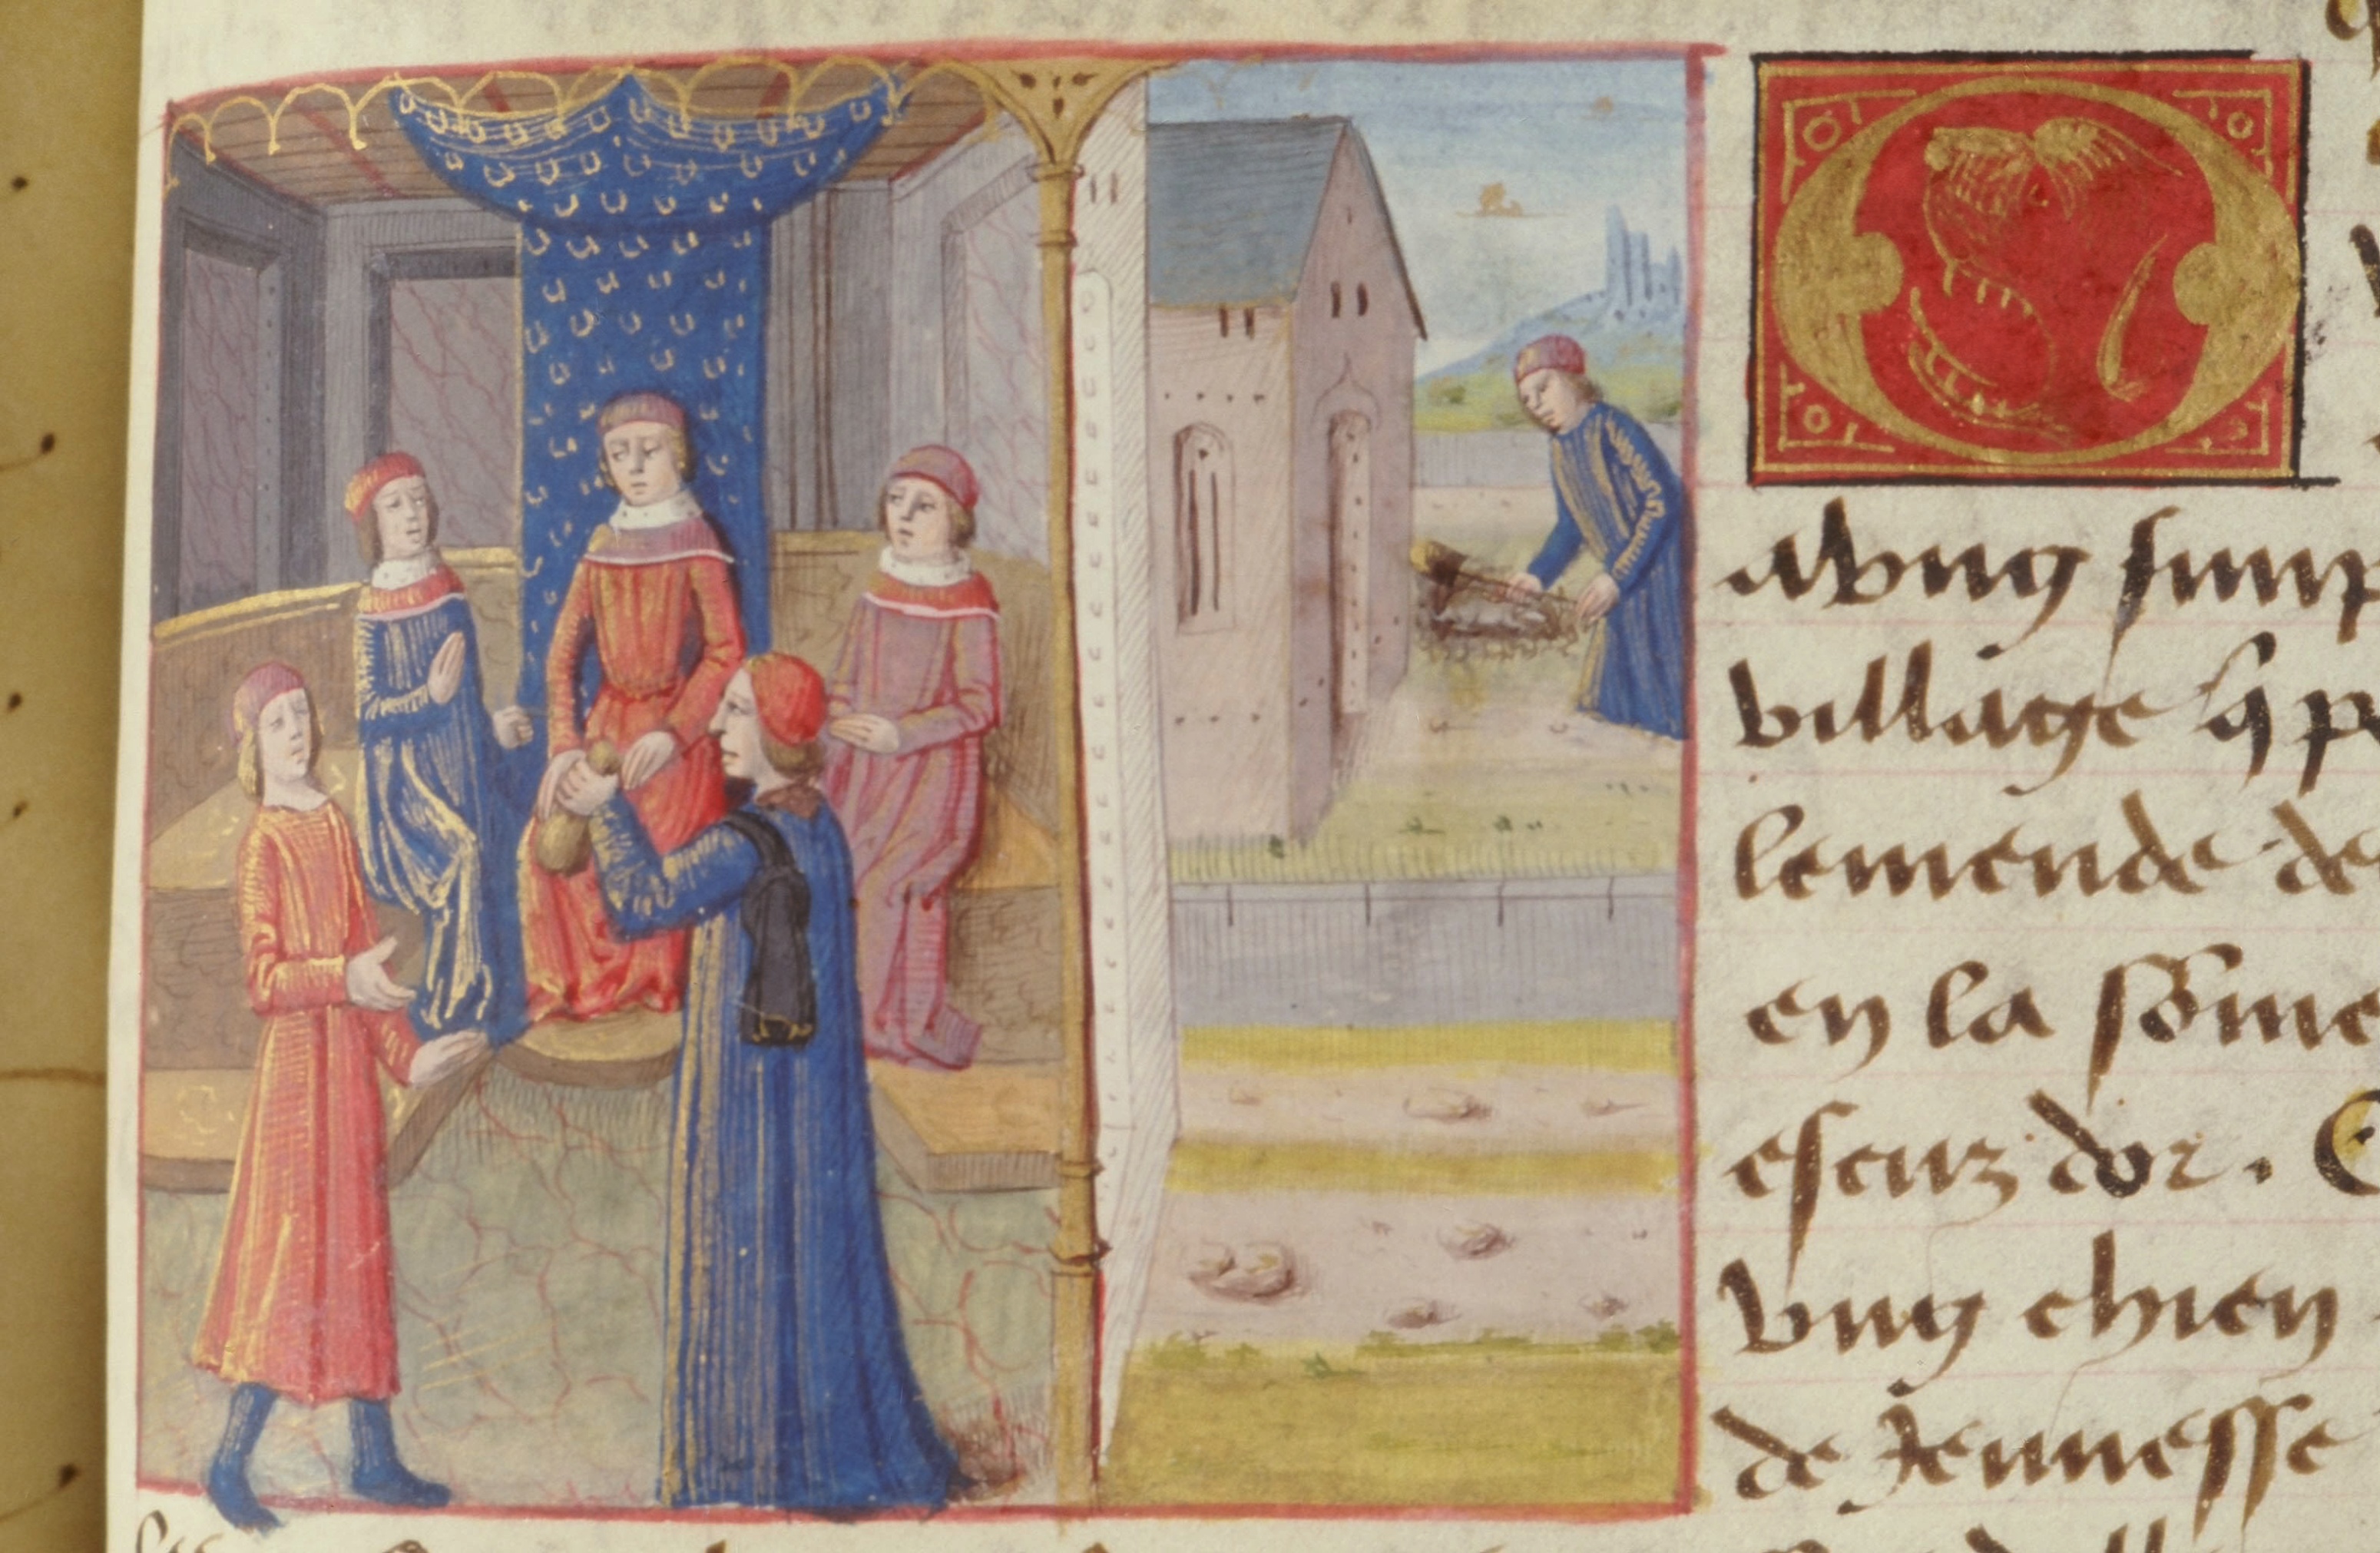 O
a vng simp
village q p
lemende de
en la so͞me
escuz dor. C
vng chien
de Jeunesse